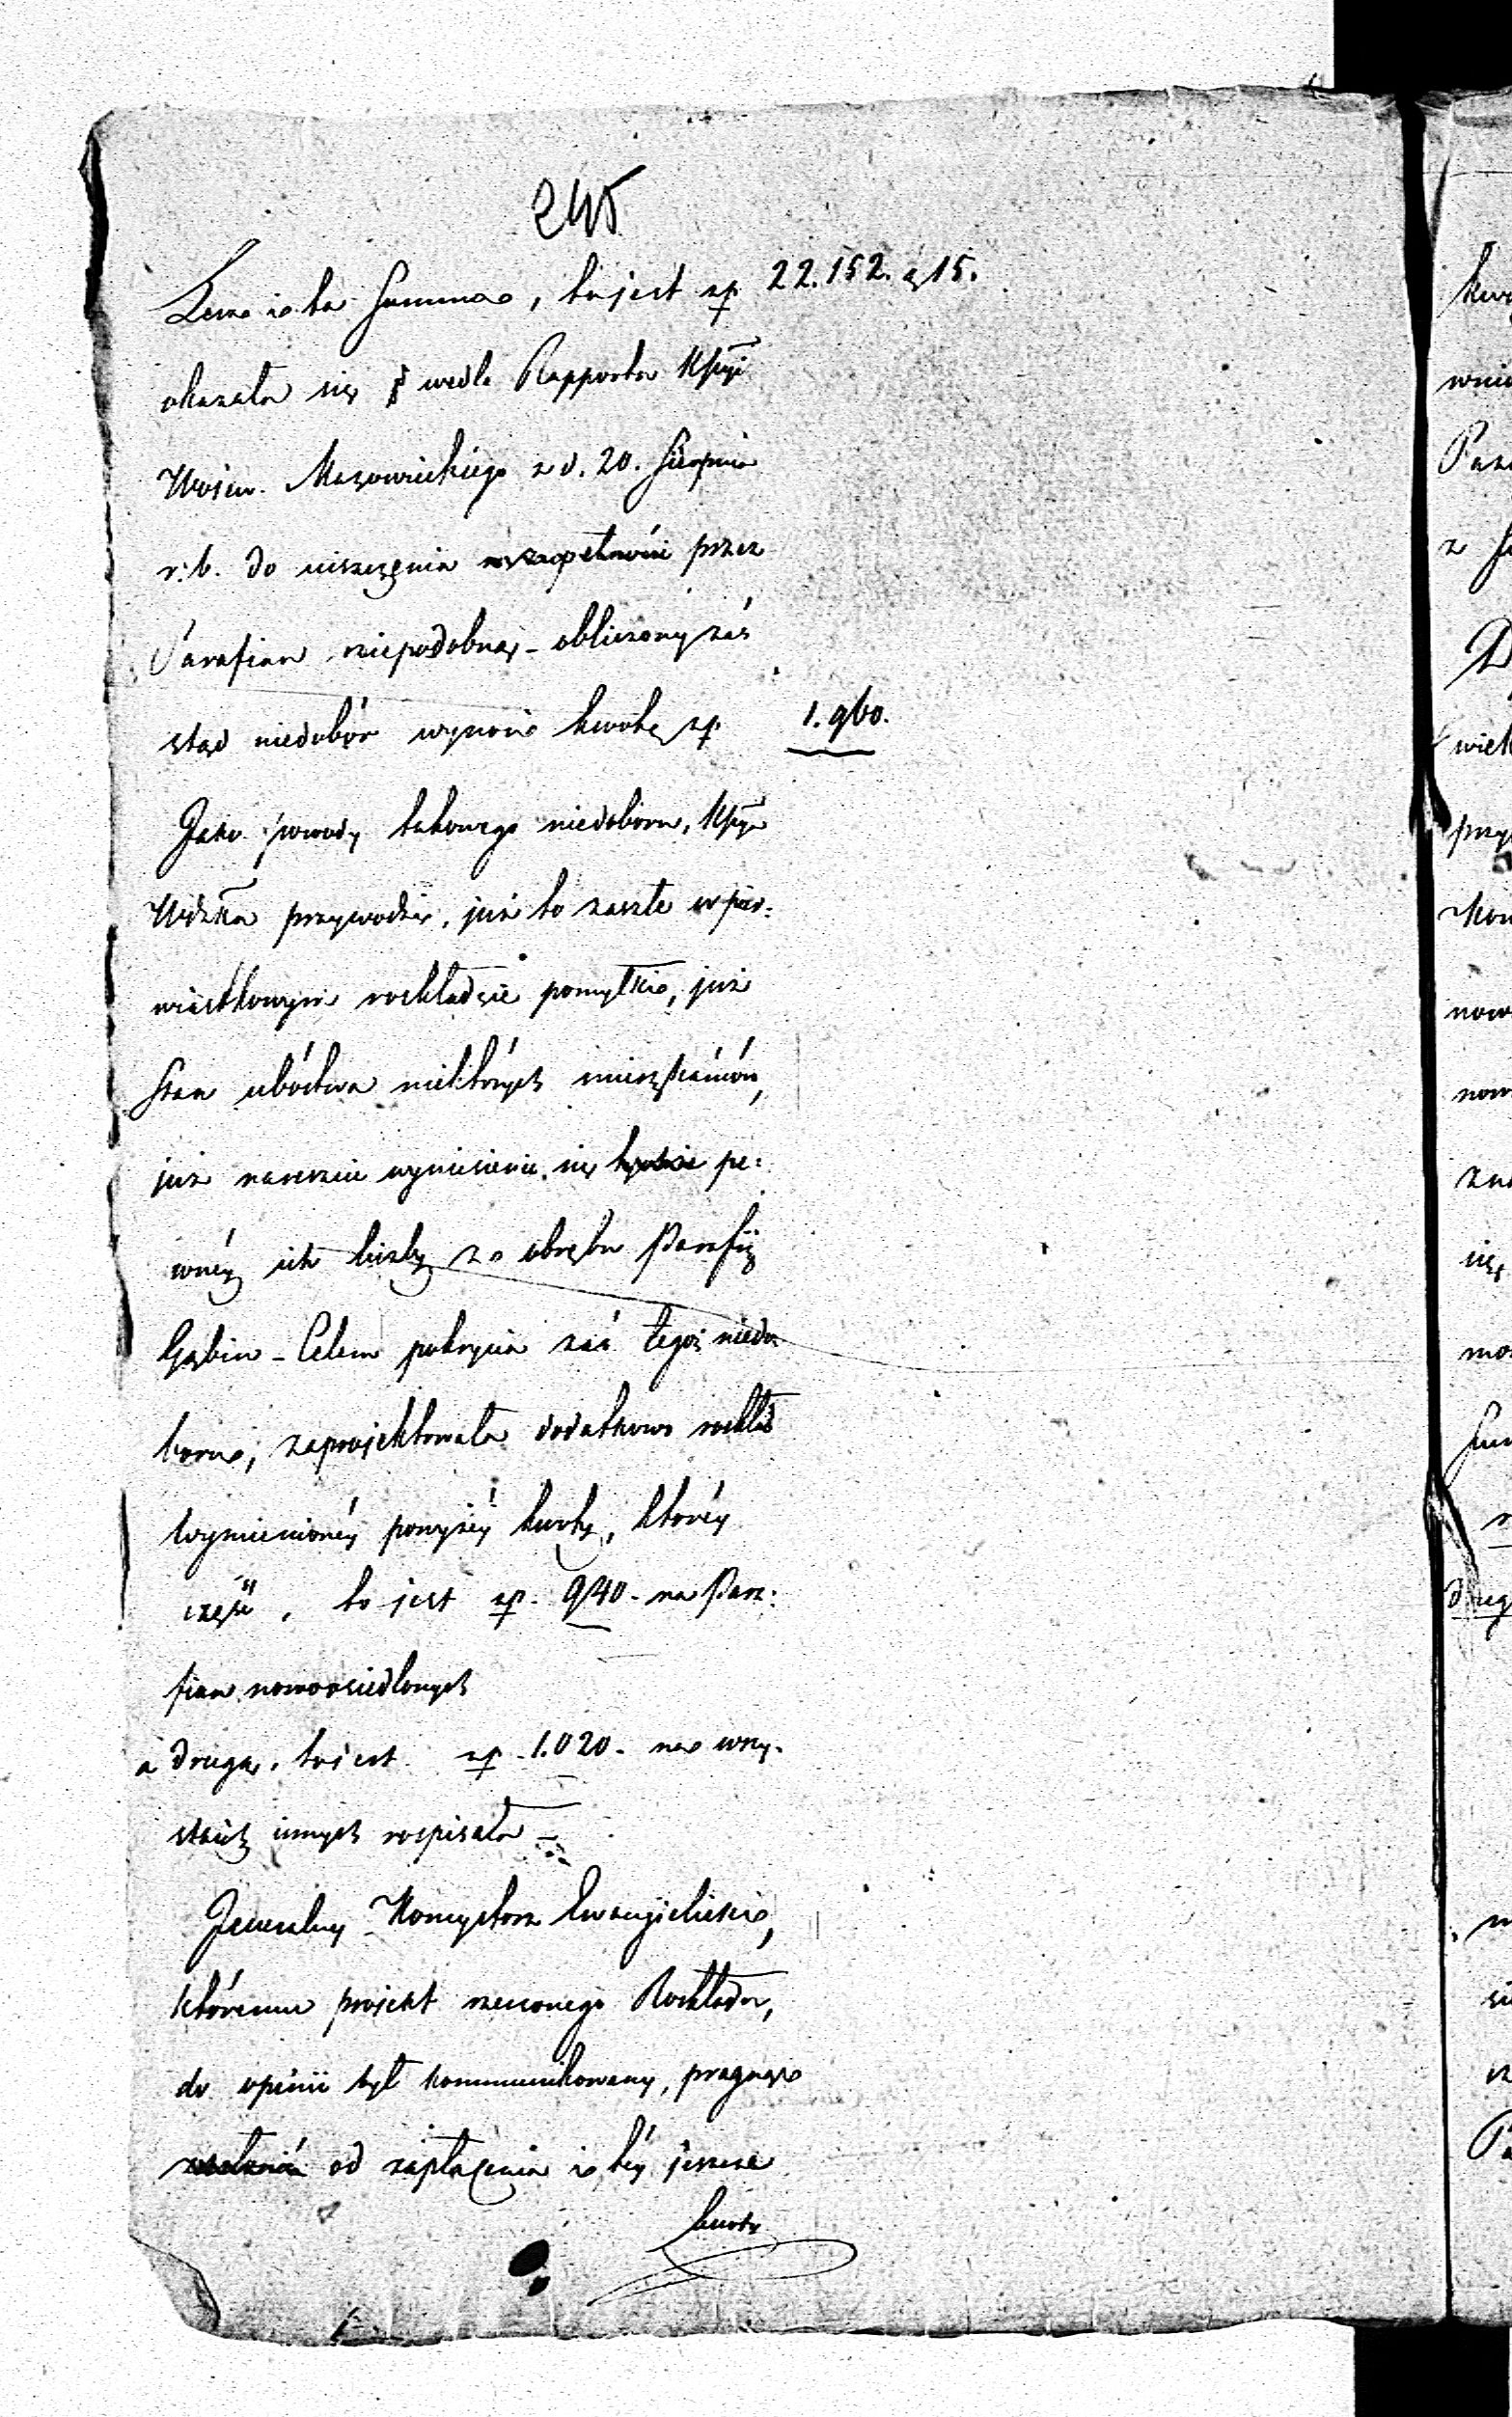 245
Lecz i ta Summa, to jest zp. 22.152. g 15.
okazała się wedle Rapportu Kssyi
Wojew. Mazowieckiego z d. 20. Sierpnia
r. b. do uiszczenia w zupełności przez
Parafian niepodobną - obliczony zaś
stąd niedobór wynosi kwotę zp. 1.960.
Jako powody takowego niedoboru, Kssya
Wdzka przywodzi, już to zaszłe w pier:
wiastkowym rozkładzie pomyłki, już
Stan ubóstwa niektórych mieszkańców,
już nareszcie wyniesienie się pe:
wnéy ich liczby z obrębu Parafii
Gąbin - Celem pokrycia zaś tegoż niedo
boru, zaprojektowała dodatkowo rozkład
wymienionéy powyżéy kwoty, któréy
część, to jest zp. 940 - na Para:
fian nowoosiedlonych
a drugą, to jest zp. 1.020 - na wszy-
stkich innych rospisała -
Jeneralny Konsystorz Ewangielicki,
któremu projekt rzeczonego Rozkładu,
do opinii był kommunikowany, pragnąc
od zapłacenia i téy jeszcze
kwoty